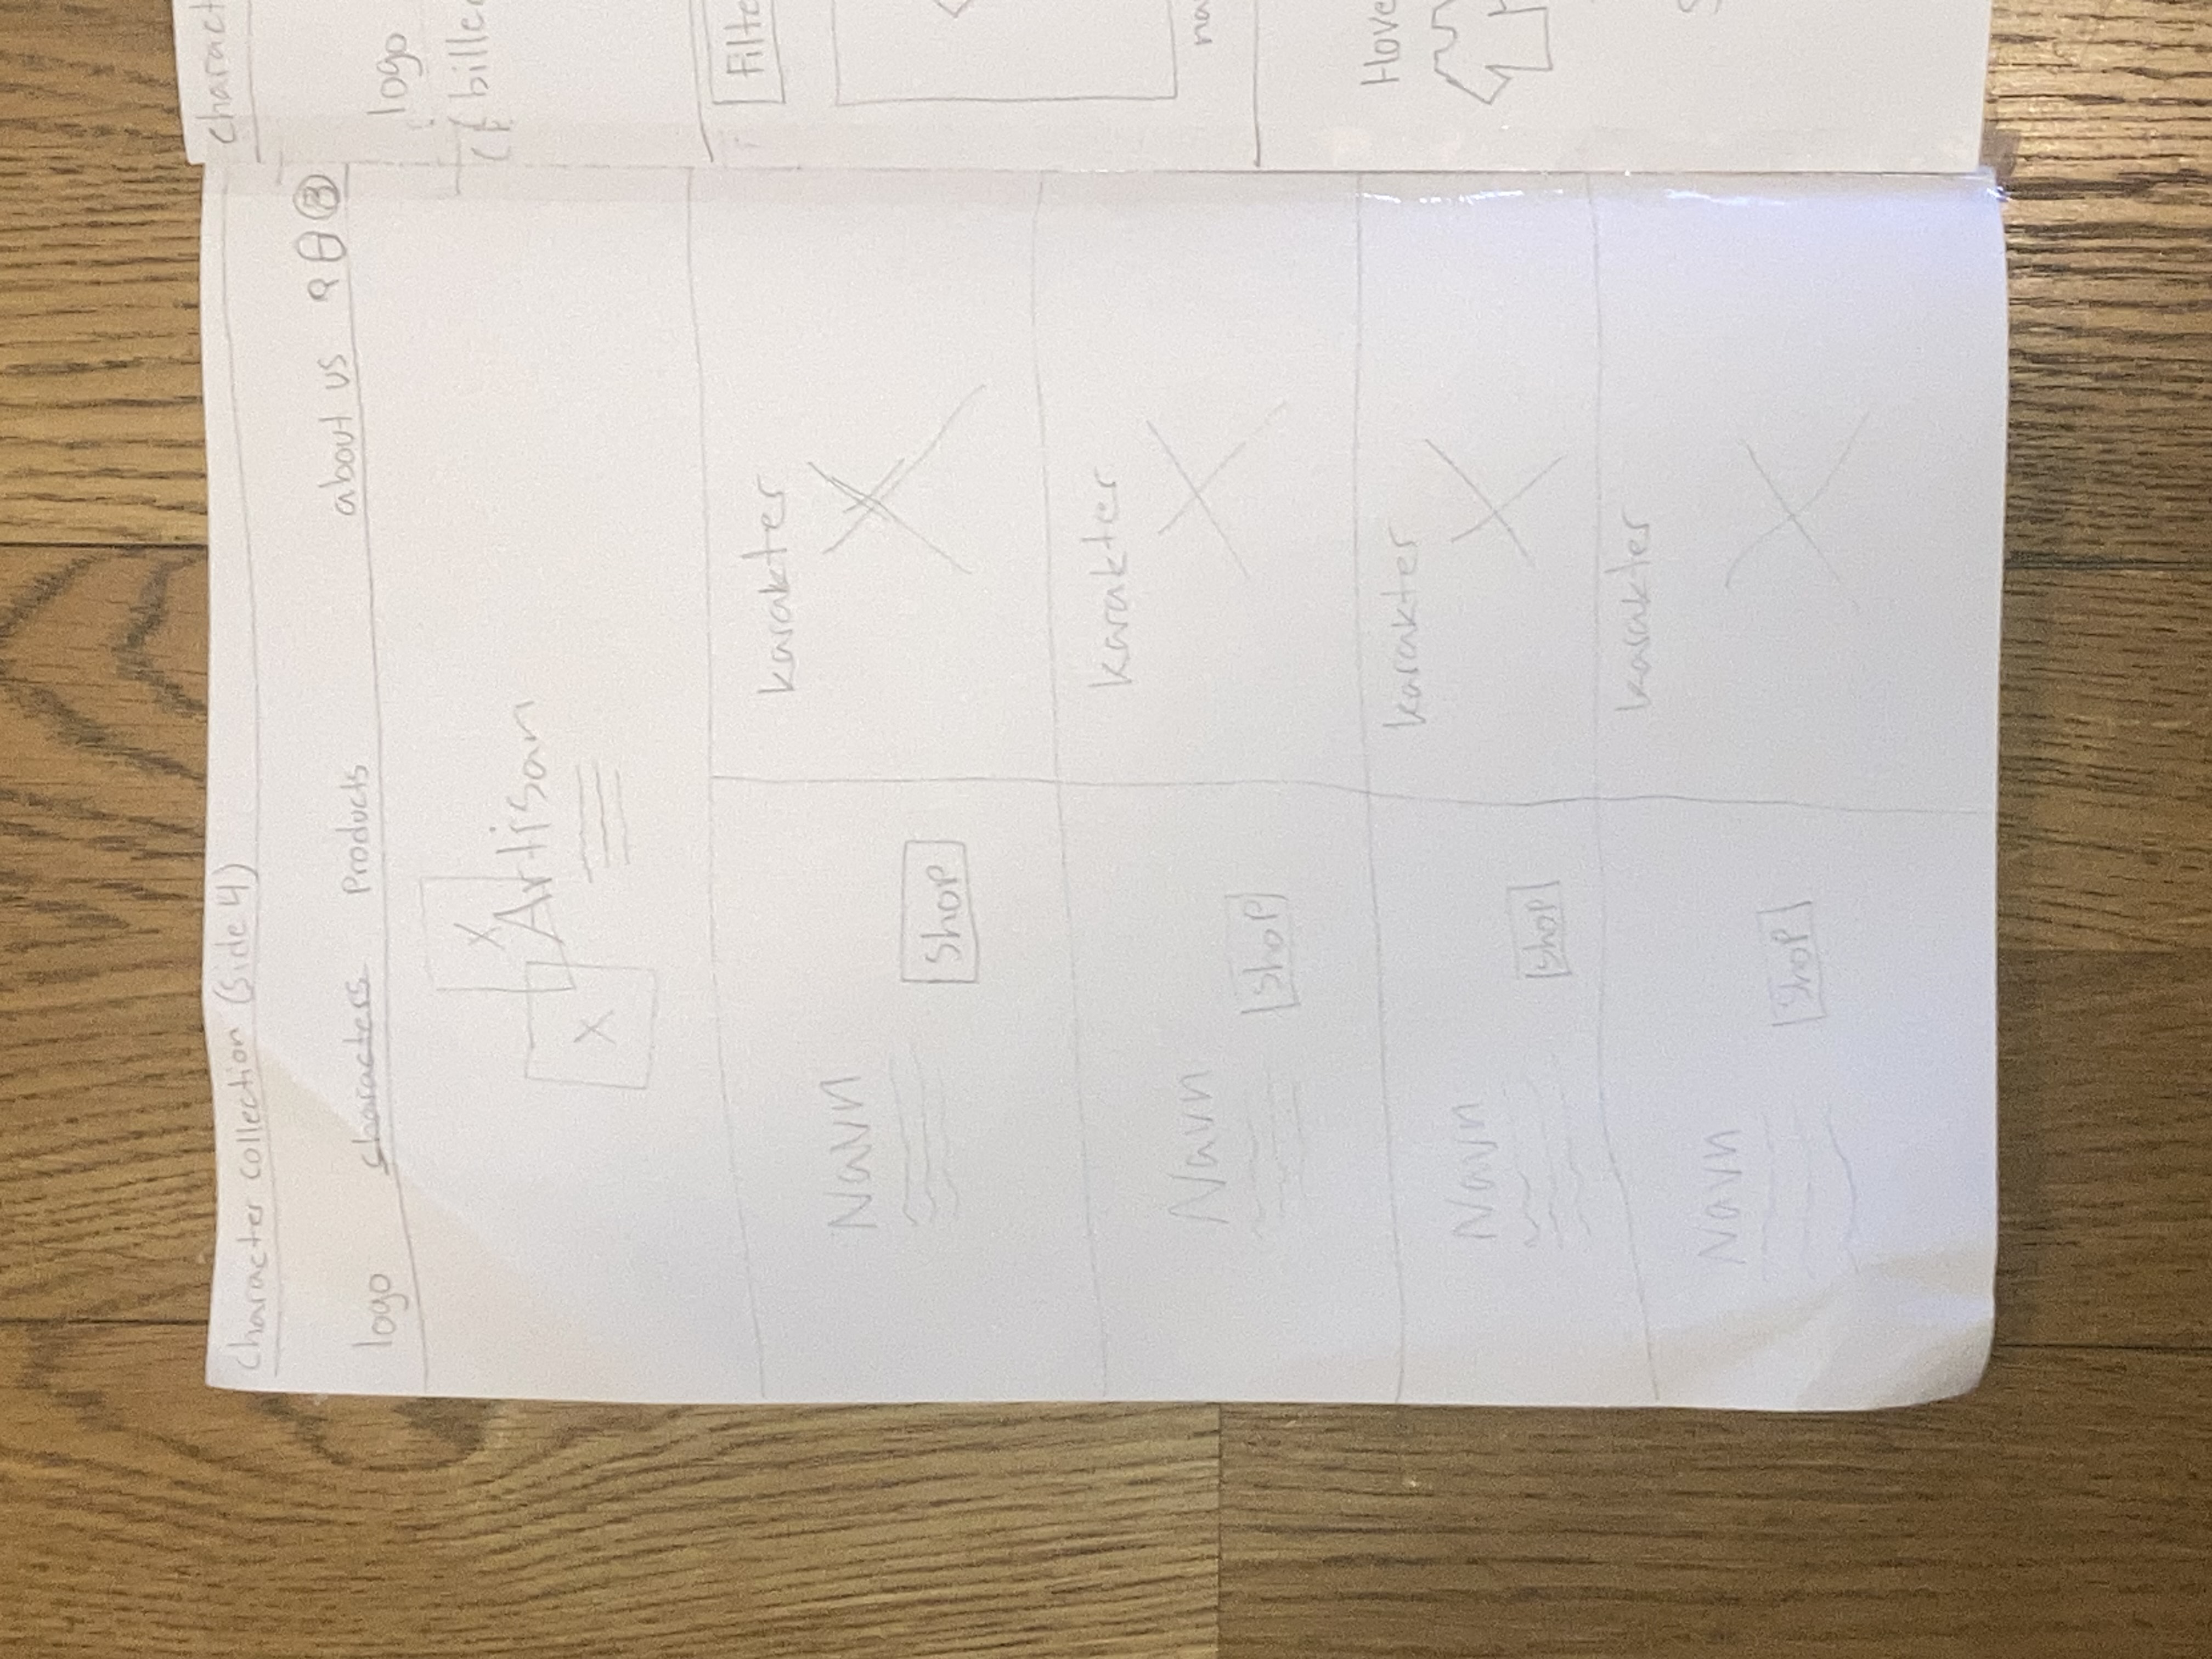 Character collection (Side 4)
logo characters Products about us
Artisan
karakter
Navn
Shop
karakter
Navn
Shop
karakter
Navn
Shop
karakter
Navn
Shop
charact
logo
bille
Filte
na
Hove
S